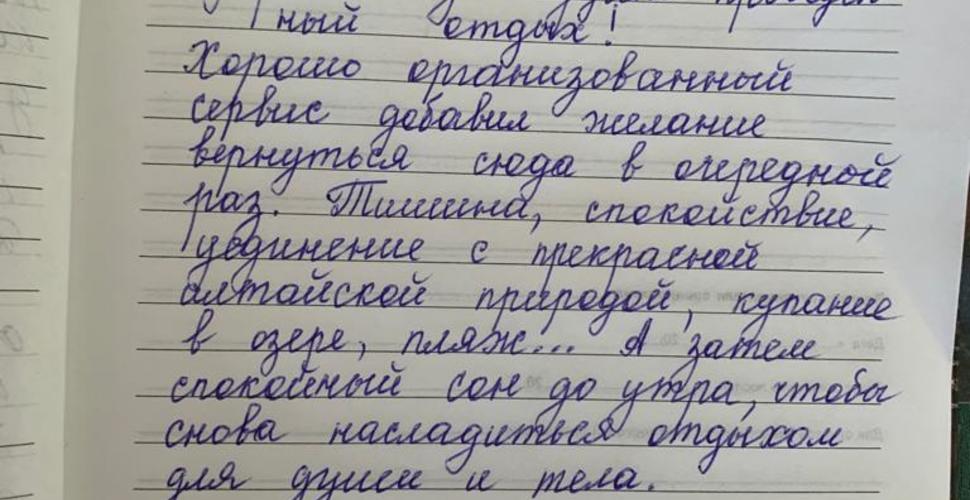 ный отдых!
Хорошо организованный
сервис добавил желание
вернуться сюда в очередной
раз. Тишина, спокойствие,
уединение с прекрасной
алтайской природой, купание
в озере, пляж... А затем
спокойный сон до утра, чтобы
снова насладиться отдыхом
для души и тела.